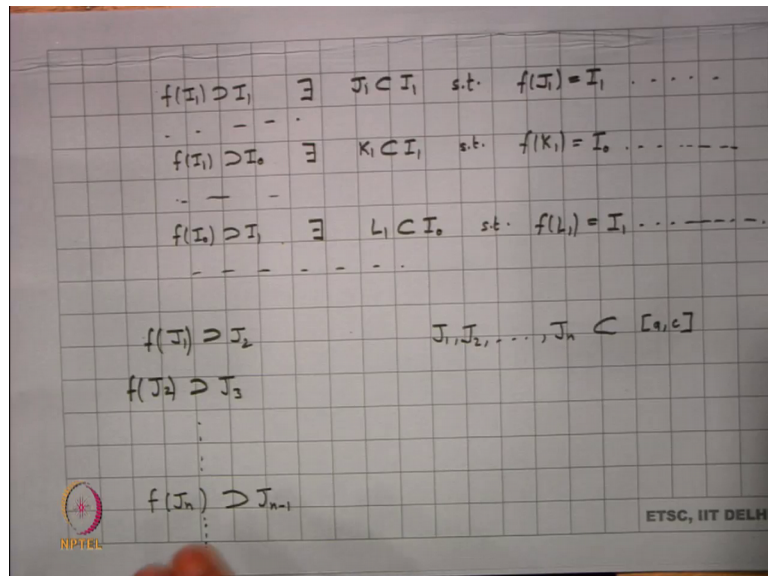 f(I₁) ⊃ I₁ ∃ J₁ ⊂ I₁ s.t. f(J₁) = I₁ . . . . .
. . - - .
f(I₁) ⊃ I₀ ∃ K₁ ⊂ I₁ s.t. f(K₁) = I₀ . . . - - - -
. - -
f(I₀) ⊃ I₁ ∃ L₁ ⊂ I₀ s.t. f(L₁) = I₁ . . . - - - - .
- - - - - - .
f(J₁) ⊃ J₂ J₁, J₂, . . . ., Jₙ ⊂ [a,c]
f(J₂) ⊃ J₃
⋮
f(Jₙ) ⊃ Jₙ₋₁
⋮
ETSC, IIT DELH
NPTEL